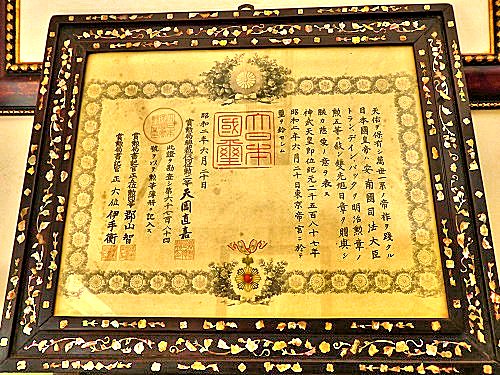 天佑ヲ保有シ萬世一系ノ帝祚ヲ踐タル
日本國皇帝ハ安南國司法大臣
トランディンバックヲ明治勲章ノ
勲等ニ敍シ光旭日章ヲ贈與シ
朕カ慈愛ノ意ヲ表ス
神武天皇即位紀元二千五百八十七年
昭和二年六月二十日東京帝宮ニ於テ
璽ヲ鈐セシム
大日本國璽
昭和二年六月二十日
賞勲局總裁勲二等天岡直嘉
此證ヲ勘査シ第六千七百八十四
號ヲ以テ勲等簿冊ニ記入ス
賞勲局書記官正五位勲等郡山智
賞勲局書記官正六位伊手衛